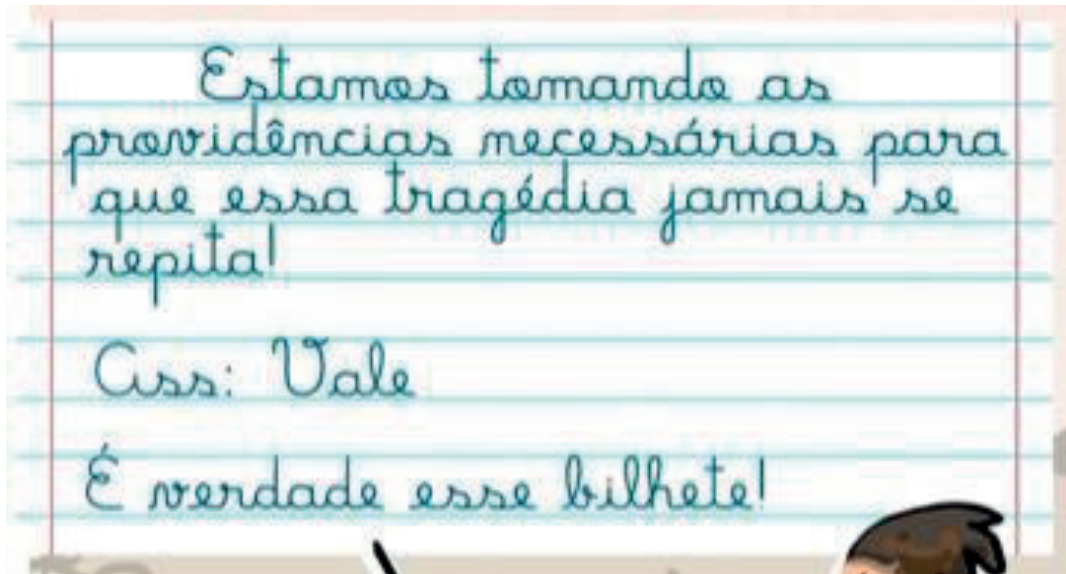 Estamos tomando as
providências necessárias para
que essa tragédia jamais se
repita!
Ass: Vale
É verdade esse bilhete!